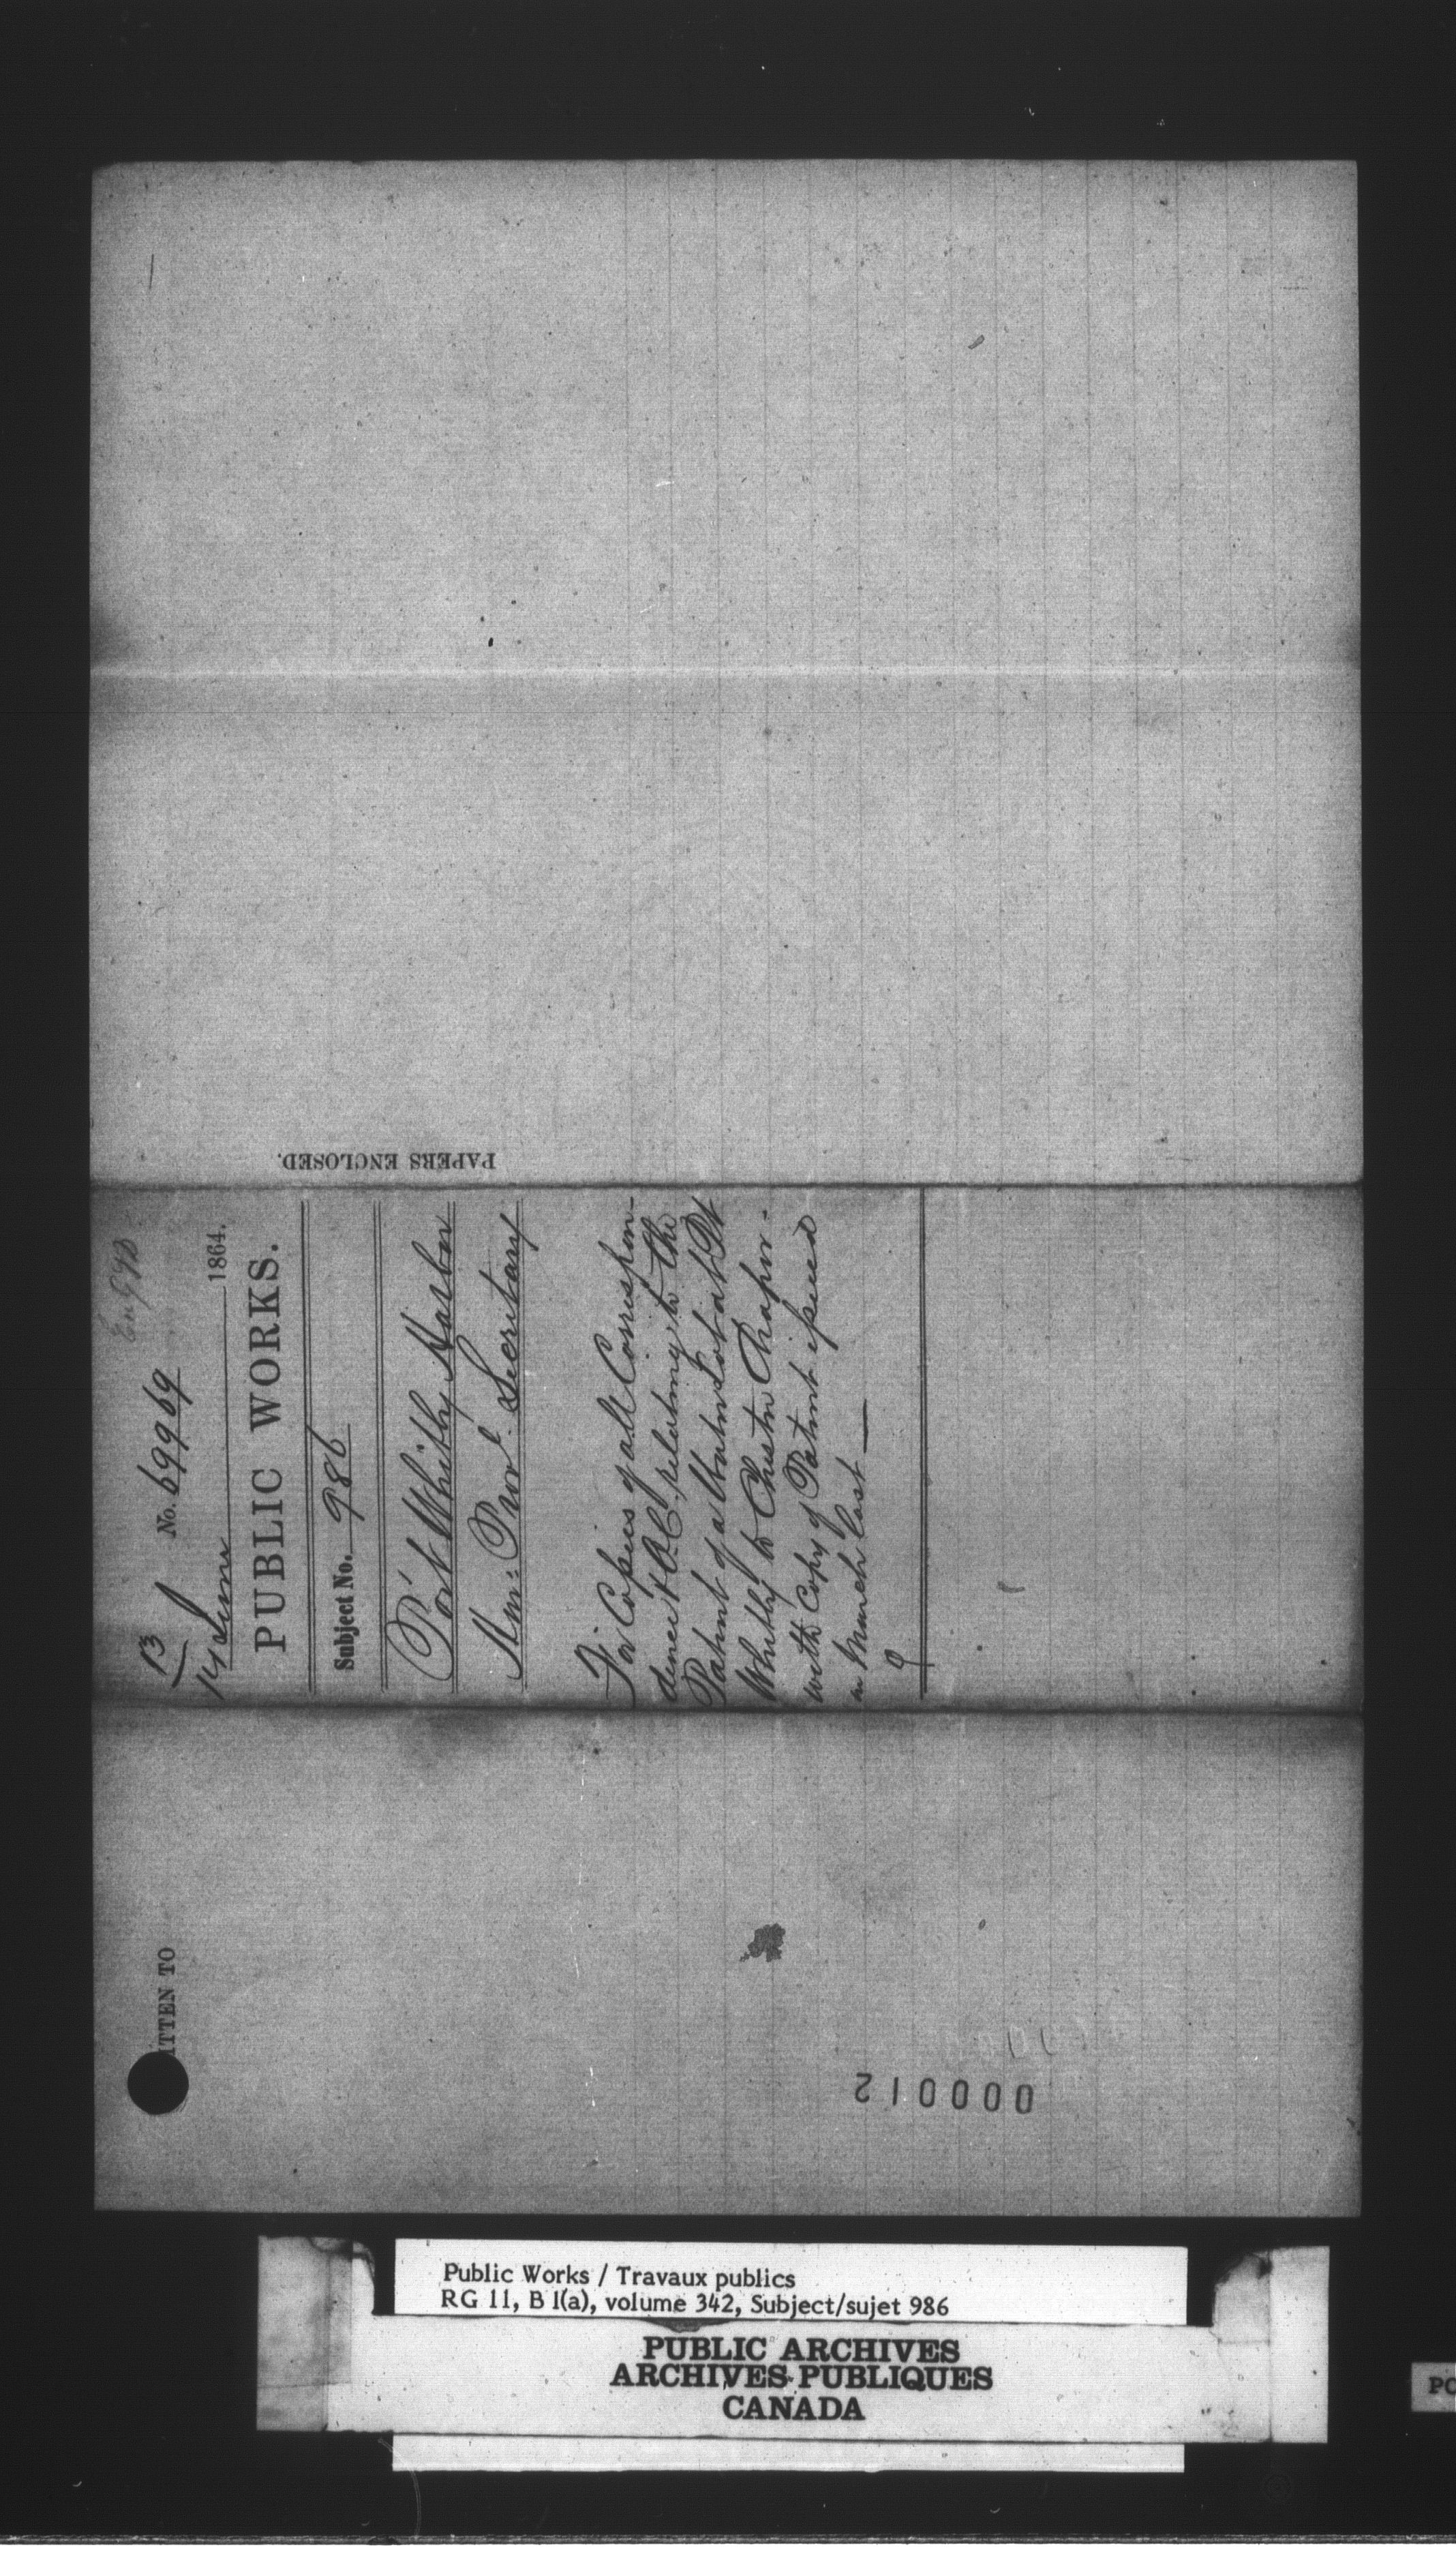 13 No. 69969
14 June 1864.
PUBLIC WORKS.
Subject No. 986
Port Whitby Harbor
Hon: Provl. Secretary
For Copies of all Correspon-
dence & O.C. relating to the
Patent of a Water Lot at Pt
Whitby to Chester Draper -
with Copy of Patent issued
in March last —
PAPERS ENCLOSED.
ITTEN TO
000012
Public Works / Travaux publics
RG 11, B 1(a), volume 342, Subject/sujet 986
PUBLIC ARCHIVES
ARCHIVES PUBLIQUES
CANADA
PO